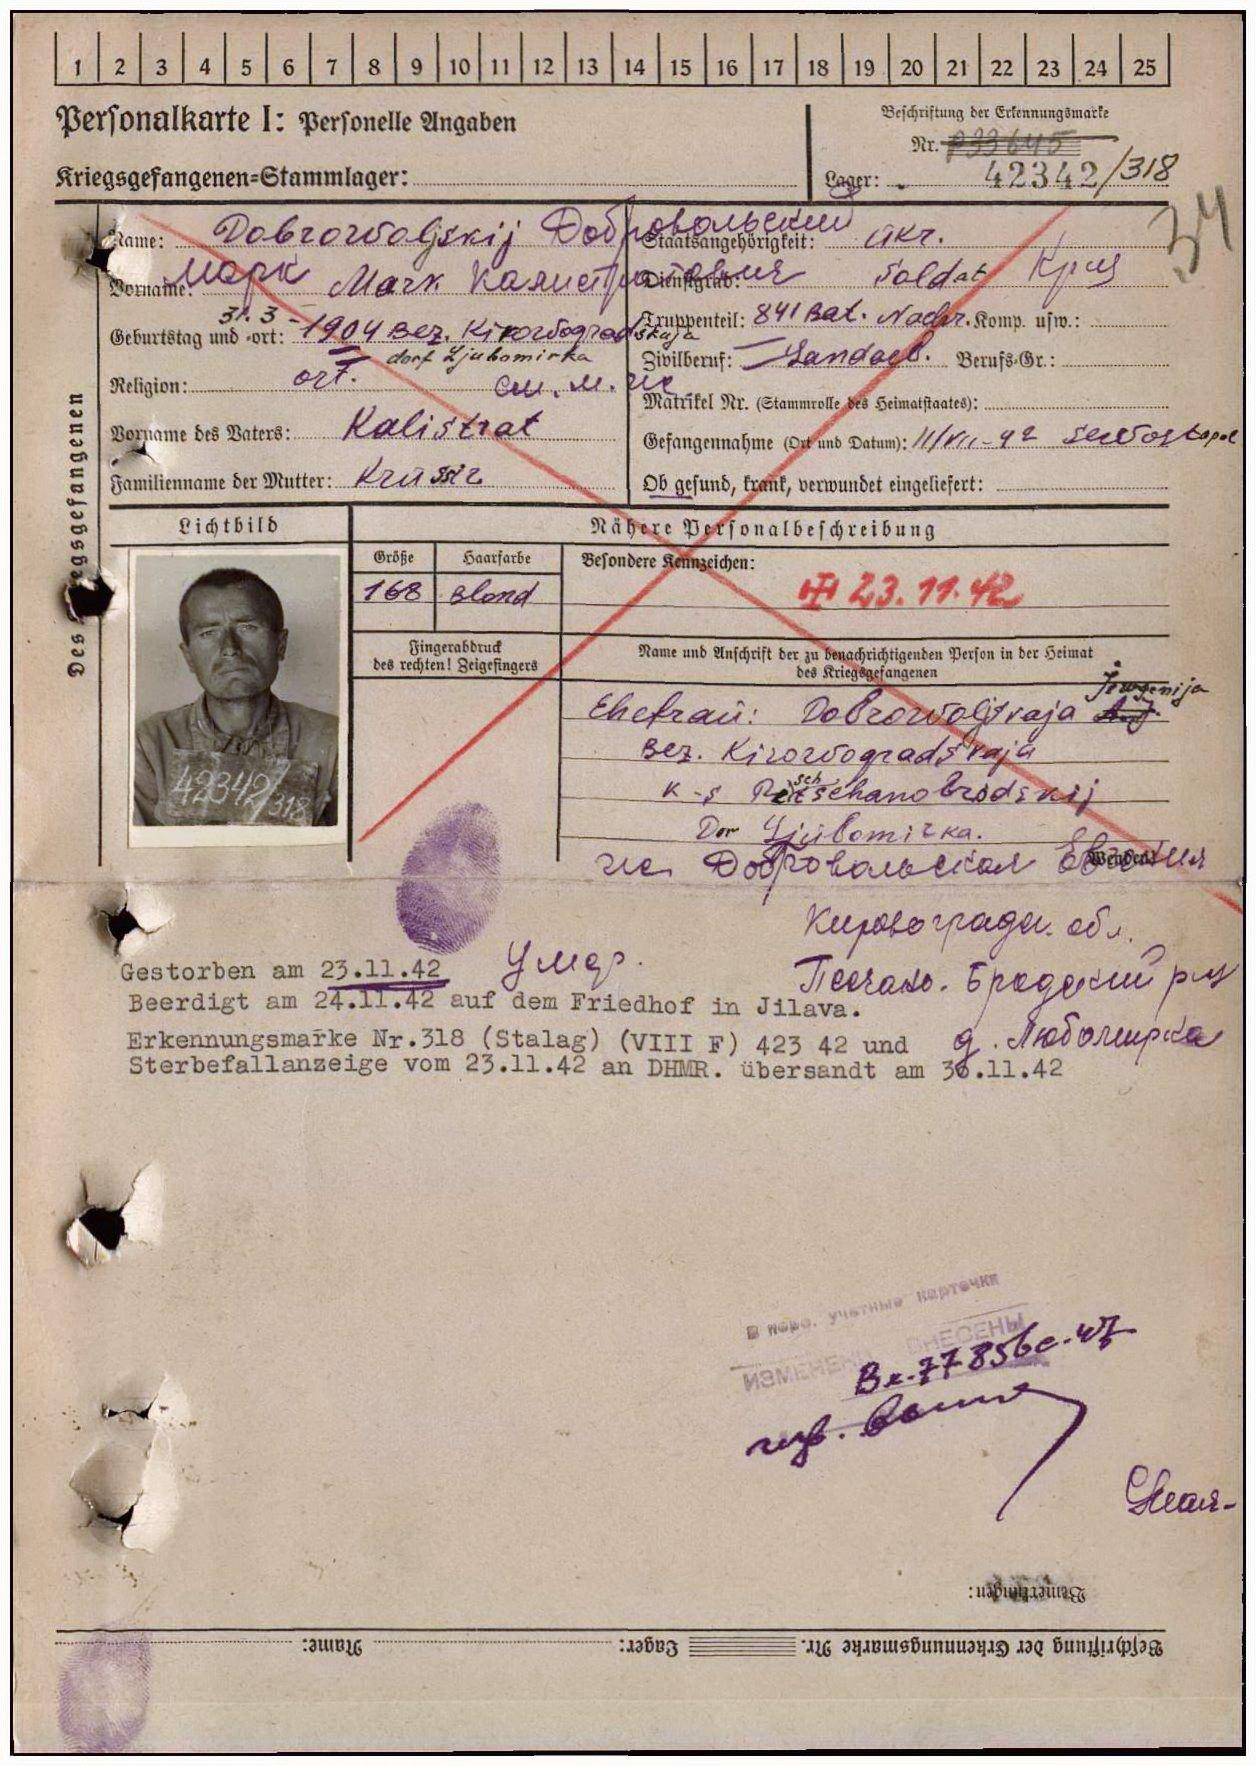 1 2 3 4 5 6 7 8 9 10 11 12 13 14 15 16 17 18 19 20 21 22 23 24 25
Personalkarte I: Personelle Angaben
Beschriftung der Erkennungsmarke
Nr.
Kriegsgefangenen=Stammlager:
Lager: 42342/318
34
Des Kriegsgefangenen
Name: Dobrowoljskij Добровольский
Vorname: Марк Mark Калистратович
Geburtstag und -ort: 31. 3 - 1904 Bez. Kirowogradskaja
dorf Ljubomirka
Religion: ort. см. м. ж.
Vorname des Vaters: Kalistrat
Familienname der Mutter: Krussir
Staatsangehörigkeit: Ukr.
Dienstgrad: Soldat Кр-ц
Truppenteil: 841 Bat. Nachr. Komp. usw.:
Zivilberuf: Landarb. Berufs-Gr.:
Matrikel Nr. (Stammrolle des Heimatstaates):
Gefangennahme (Ort und Datum): 11/VII-42 Sewostopol
Ob gesund, krank, verwundet eingeliefert:
Lichtbild
Nähere Personalbeschreibung
Größe Haarfarbe
168 blond
Besondere Kennzeichen:
23.11.42
Fingerabdruck
des rechten! Zeigefingers
Name und Anschrift der zu benachrichtigenden Person in der Heimat
des Kriegsgefangenen
Jewgenija
Ehefrau: Dobrowoljskaja
Bez. Kirowogradskaja
k-s Pestschanobrodskij
Dor Ljubomirka.
42342/318
Wenden!
ж. Добровольская Евгения
Кировоградск. обл.
Песчано-Бродский р-н
д. Любомирка
Gestorben am 23.11.42 Умер.
Beerdigt am 24.11.42 auf dem Friedhof in Jilava.
Erkennungsmarke Nr.318 (Stalag) (VIII F) 423 42 und
Sterbefallanzeige vom 23.11.42 an DHMR. übersandt am 30.11.42
В перс. учетные карточки
ИЗМЕНЕНИЯ ВНЕСЕНЫ
Вх-77856с-47
Bemerkungen:
Beschriftung der Erkennungsmarke Nr. Lager: Name: